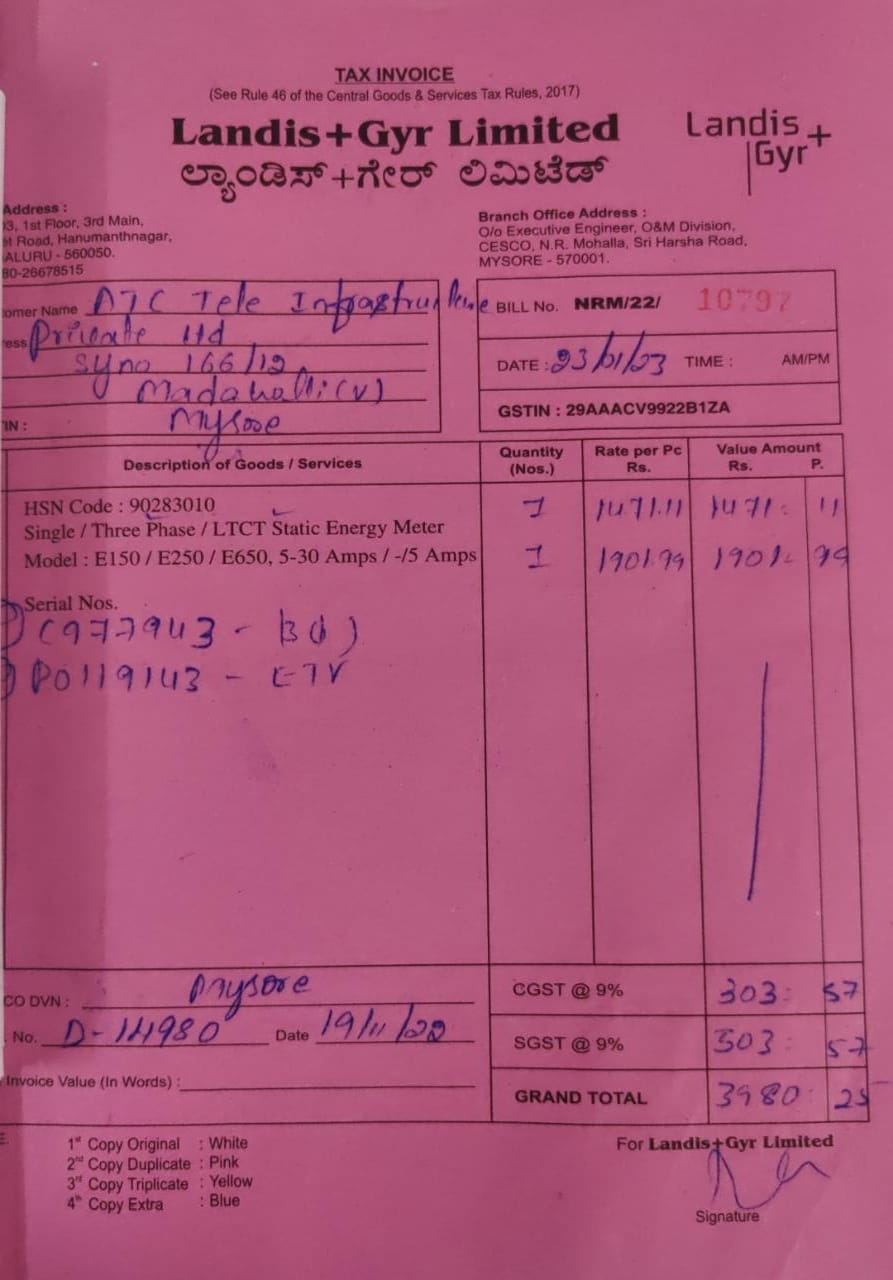 TAX INVOICE
(See Rule 46 of the Central Goods & Services Tax Rules, 2017)
Landis+Gyr Limited
Landis
Gyr+
ಲ್ಯಾಂಡಿಸ್+ಗೇರ್ ಲಿಮಿಟೆಡ್
Address :
3, 1st Floor, 3rd Main,
Road, Hanumanthnagar,
ALURU - 560050.
80-26678515
Branch Office Address :
O/o Executive Engineer, O&M Division,
CESCO, N.R. Mohalla, Sri Harsha Road,
MYSORE - 570001.
omer Name ATC Tele Infrastructure
ess Private ltd
Sy no 166/12
Madahalli (v)
IN : Mysore
BILL No. NRM/22/ 10797
DATE : 23/01/23 TIME : AM/PM
GSTIN : 29AAACV9922B1ZA
Description of Goods / Services Quantity (Nos.) Rate per Pc Rs. Value Amount Rs. P.
HSN Code : 90283010 1 1471.11 1471 11
Single / Three Phase / LTCT Static Energy Meter
Model : E150 / E250 / E650, 5-30 Amps / -/5 Amps 1 1901.99 1901 99
Serial Nos.
P0119143 - ETV
CO DVN : Mysore
CGST @ 9% 303 57
No. D-14980 Date 19/11/22
SGST @ 9% 303 57
Invoice Value (In Words) :
GRAND TOTAL 3980 25
1st Copy Original : White
2nd Copy Duplicate : Pink
3rd Copy Triplicate : Yellow
4th Copy Extra : Blue
For Landis+Gyr Limited
Signature